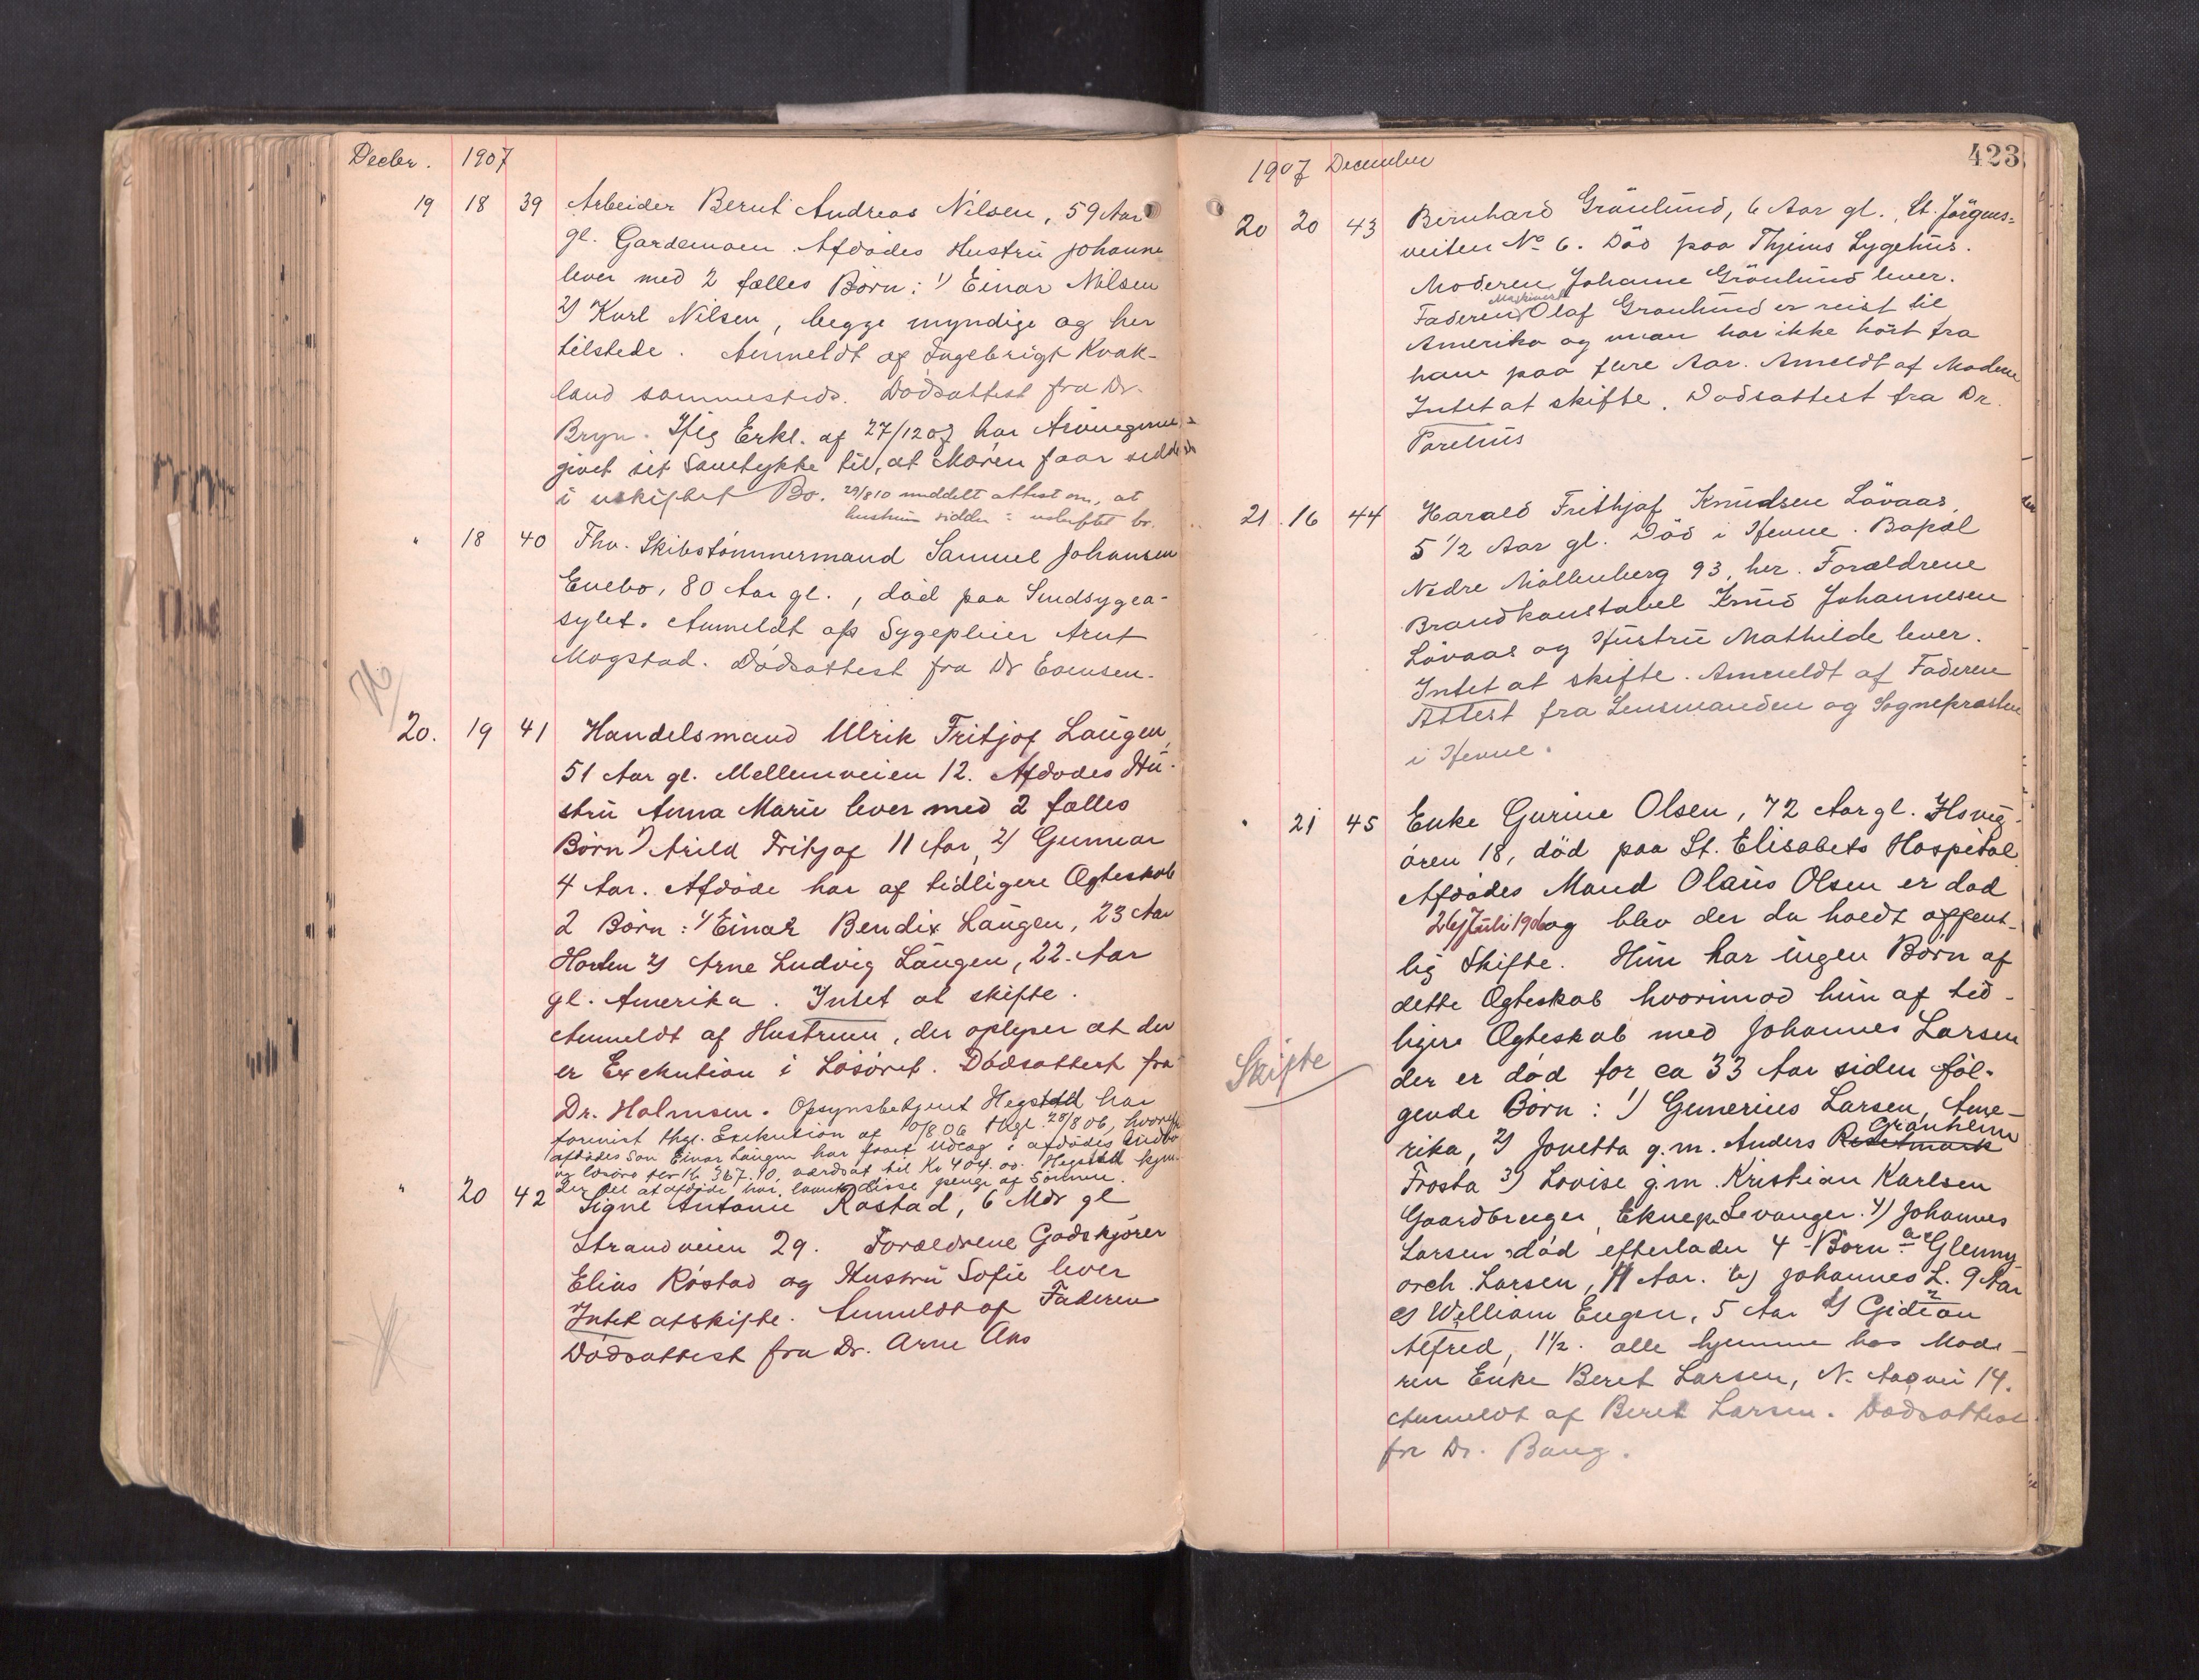 Decbr. 1907
19 18 39 Arbeider Bernt Andreas Nilsen, 59 Aar
gl. Gardemoen. Afdødes Hustru Johanne
lever med 2 fælles Børn: 1) Einar Nilsen
2) Karl Nilsen, begge myndige og her
tilstede. Anmeldt af Ingebrigt Kvak-
land sammesteds. Dødsattest fra Dr.
Bryn. Ifig Erkl. af 27/12 07 har Arvingerne
givet sit Samtykke til, at Moren faar sidde
i uskiftet Bo. 29/8 10 meddelt attest om, at
hustruen sidder i uskiftet bo.
" 18 40 Fhv. Skibstømmermand Samuel Johansen
Enebo, 80 Aar gl., død paa Sindsygea-
sylet. Anmeldt af Sygepleier Arnt
Mogstad. Dødsattest fra Dr Evensen.
20. 19 41 Handelsmand Ulrik Fritjof Laugen,
51 Aar gl. Mellemveien 12. Afdødes Hu-
stru Anna Marie lever med 2 fælles
Børn 1) Arild Fritjof 11 Aar, 2) Gunnar
4 Aar. Afdøde har af tidligere Ægteskab
2 Børn: 1) Einar Bendix Laugen, 23 Aar
Horten 2) Arne Ludvig Laugen, 22 Aar
gl. Amerika. Intet at skifte.
Anmeldt af Hustruen, der oplyser at der
er Exekution i Løsøret. Dødsattest fra
Dr. Holmsen. Opsynsbetjent Hegstad har
forevist thgl. Exekution af 10/8 06 thgl. 28/8 06, hvorefter
afdødes Søn Einar Laugen har faaet Udlæg i afdødes Indbo
og løsøre for Kr. 367.10, værdsat til Kr 404.00. Hegstad
at afdøde har laant disse penge af Sønnen.
" 20 42 Signe Antonie Røstad, 6 Mdr gl
Strandveien 29. Forældrene Godskjører
Elias Røstad og Hustru Sofie lever
Intet at skifte. Anmeldt af Faderen
Dødsattest fra Dr. Arne Aas
1907 December 423
20 20 43 Bernhard Grönlund, 6 Aar gl., St. Jörgens-
veiten No 6. Död paa Thjems Sygehus.
Moderen Johanne Grönlund lever.
Faderen Olaf Gronlund er reist til
Amerika og man har ikke hört fra
ham paa flere Aar. Anmeldt af Moderen
Intet at skifte. Dødsattest fra Dr.
Parelius
21. 16 44 Harald Frithjof Knudsen Lövaas,
5 1/2 Aar gl. Död i Hevne. Bopæl
Nedre Möllenberg 93, her. Forældrene
Brandkonstabel Knud Johannesen
Lövaas og Hustru Mathilde lever.
Intet at skifte. Anmeldt af Faderen
Attest fra Lensmanden og Sognepræsten
i Hevne.
" 21 45 Enke Gurine Olsen, 72 Aar gl. Ilsvig-
ören 18, død paa St. Elisabets Hospital
Afdødes Mand Olaus Olsen er død
26/Juli 1906 og blev der da holdt offent-
lig Skifte. Hun har ingen Børn af
dette Ægteskab hvorimod hun af tid-
ligere Ægteskab med Johannes Larsen
Skifte
der er død for ca 33 Aar siden föl-
gende Børn: 1) Gunerius Larsen, Ame-
rika, 2) Jonetta g.m. Anders Granheim
Frosta 3) Lovise g.m. Kristian Karlsen
Gaardbruger, Ekne p. Levanger. 4) Johannes
Larsen død efterlader 4 Børn: a) Glenny
Larsen, 11 Aar. b) Johannes L. 9 Aar
c) William Eugen, 5 Aar d) Gideon
Alfred, 1 1/2. alle hjemme hos Mode-
ren Enke Beret Larsen, N. 14.
Anmeldt af Beret Larsen. Dødsattest
fra Dr. Bang.